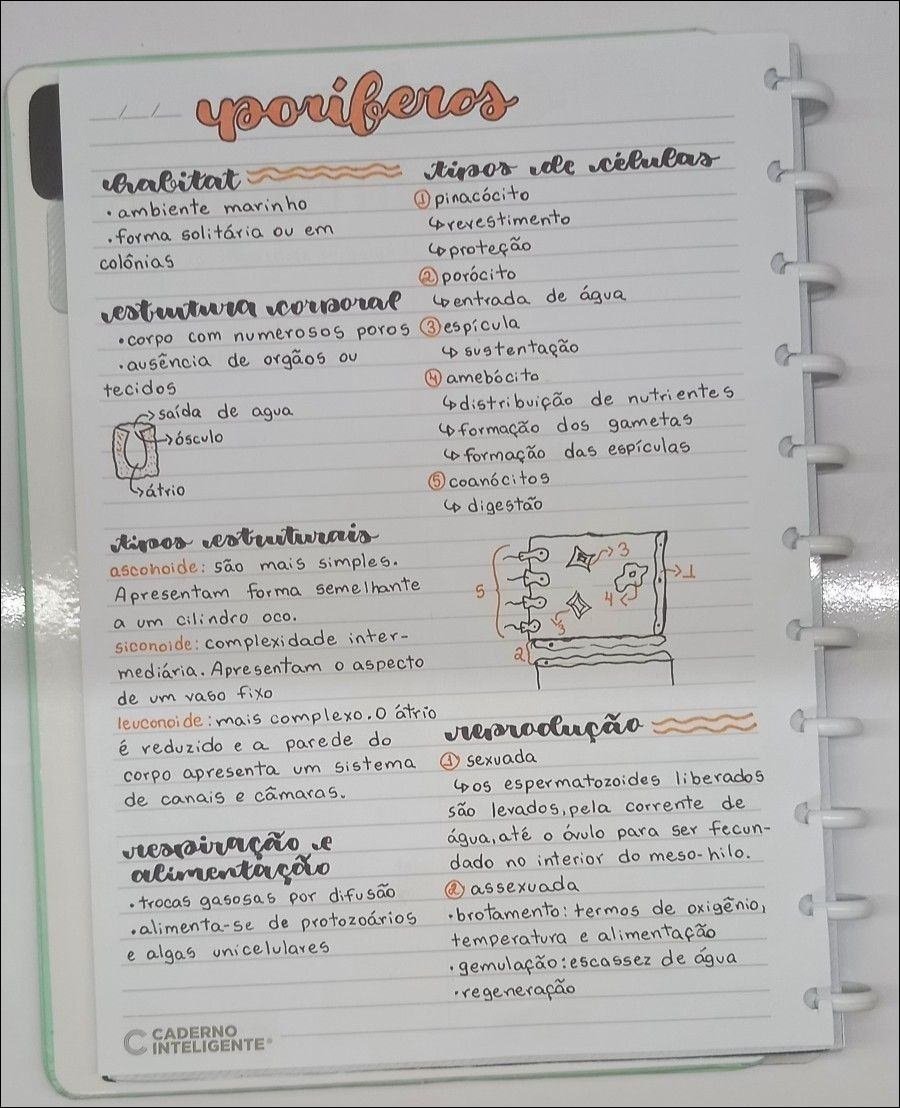 poríferos
habitat
• ambiente marinho
• forma solitária ou em
colônias
estrutura corporal
• corpo com numerosos poros
• ausência de orgãos ou
tecidos
saída de agua
ósculo
átrio
tipos estruturais
asconoide: são mais simples.
Apresentam forma semelhante
a um cilindro oco.
siconoide: complexidade inter-
mediária. Apresentam o aspecto
de um vaso fixo
leuconoide: mais complexo. O átrio
é reduzido e a parede do
corpo apresenta um sistema
de canais e câmaras.
respiração e
alimentação
• trocas gasosas por difusão
• alimenta-se de protozoários
e algas unicelulares
tipos de células
① pinacócito
↳ revestimento
↳ proteção
② porócito
↳ entrada de água
③ espícula
↳ sustentação
④ amebócito
↳ distribuição de nutrientes
↳ formação dos gametas
↳ formação das espículas
⑤ coanócitos
↳ digestão
3
1
5
4
3
2
reprodução
① sexuada
↳ os espermatozoides liberados
são levados, pela corrente de
água, até o óvulo para ser fecun-
dado no interior do meso-hilo.
② assexuada
• brotamento: termos de oxigênio,
temperatura e alimentação
• gemulação: escassez de água
• regeneração
CADERNO
INTELIGENTE®